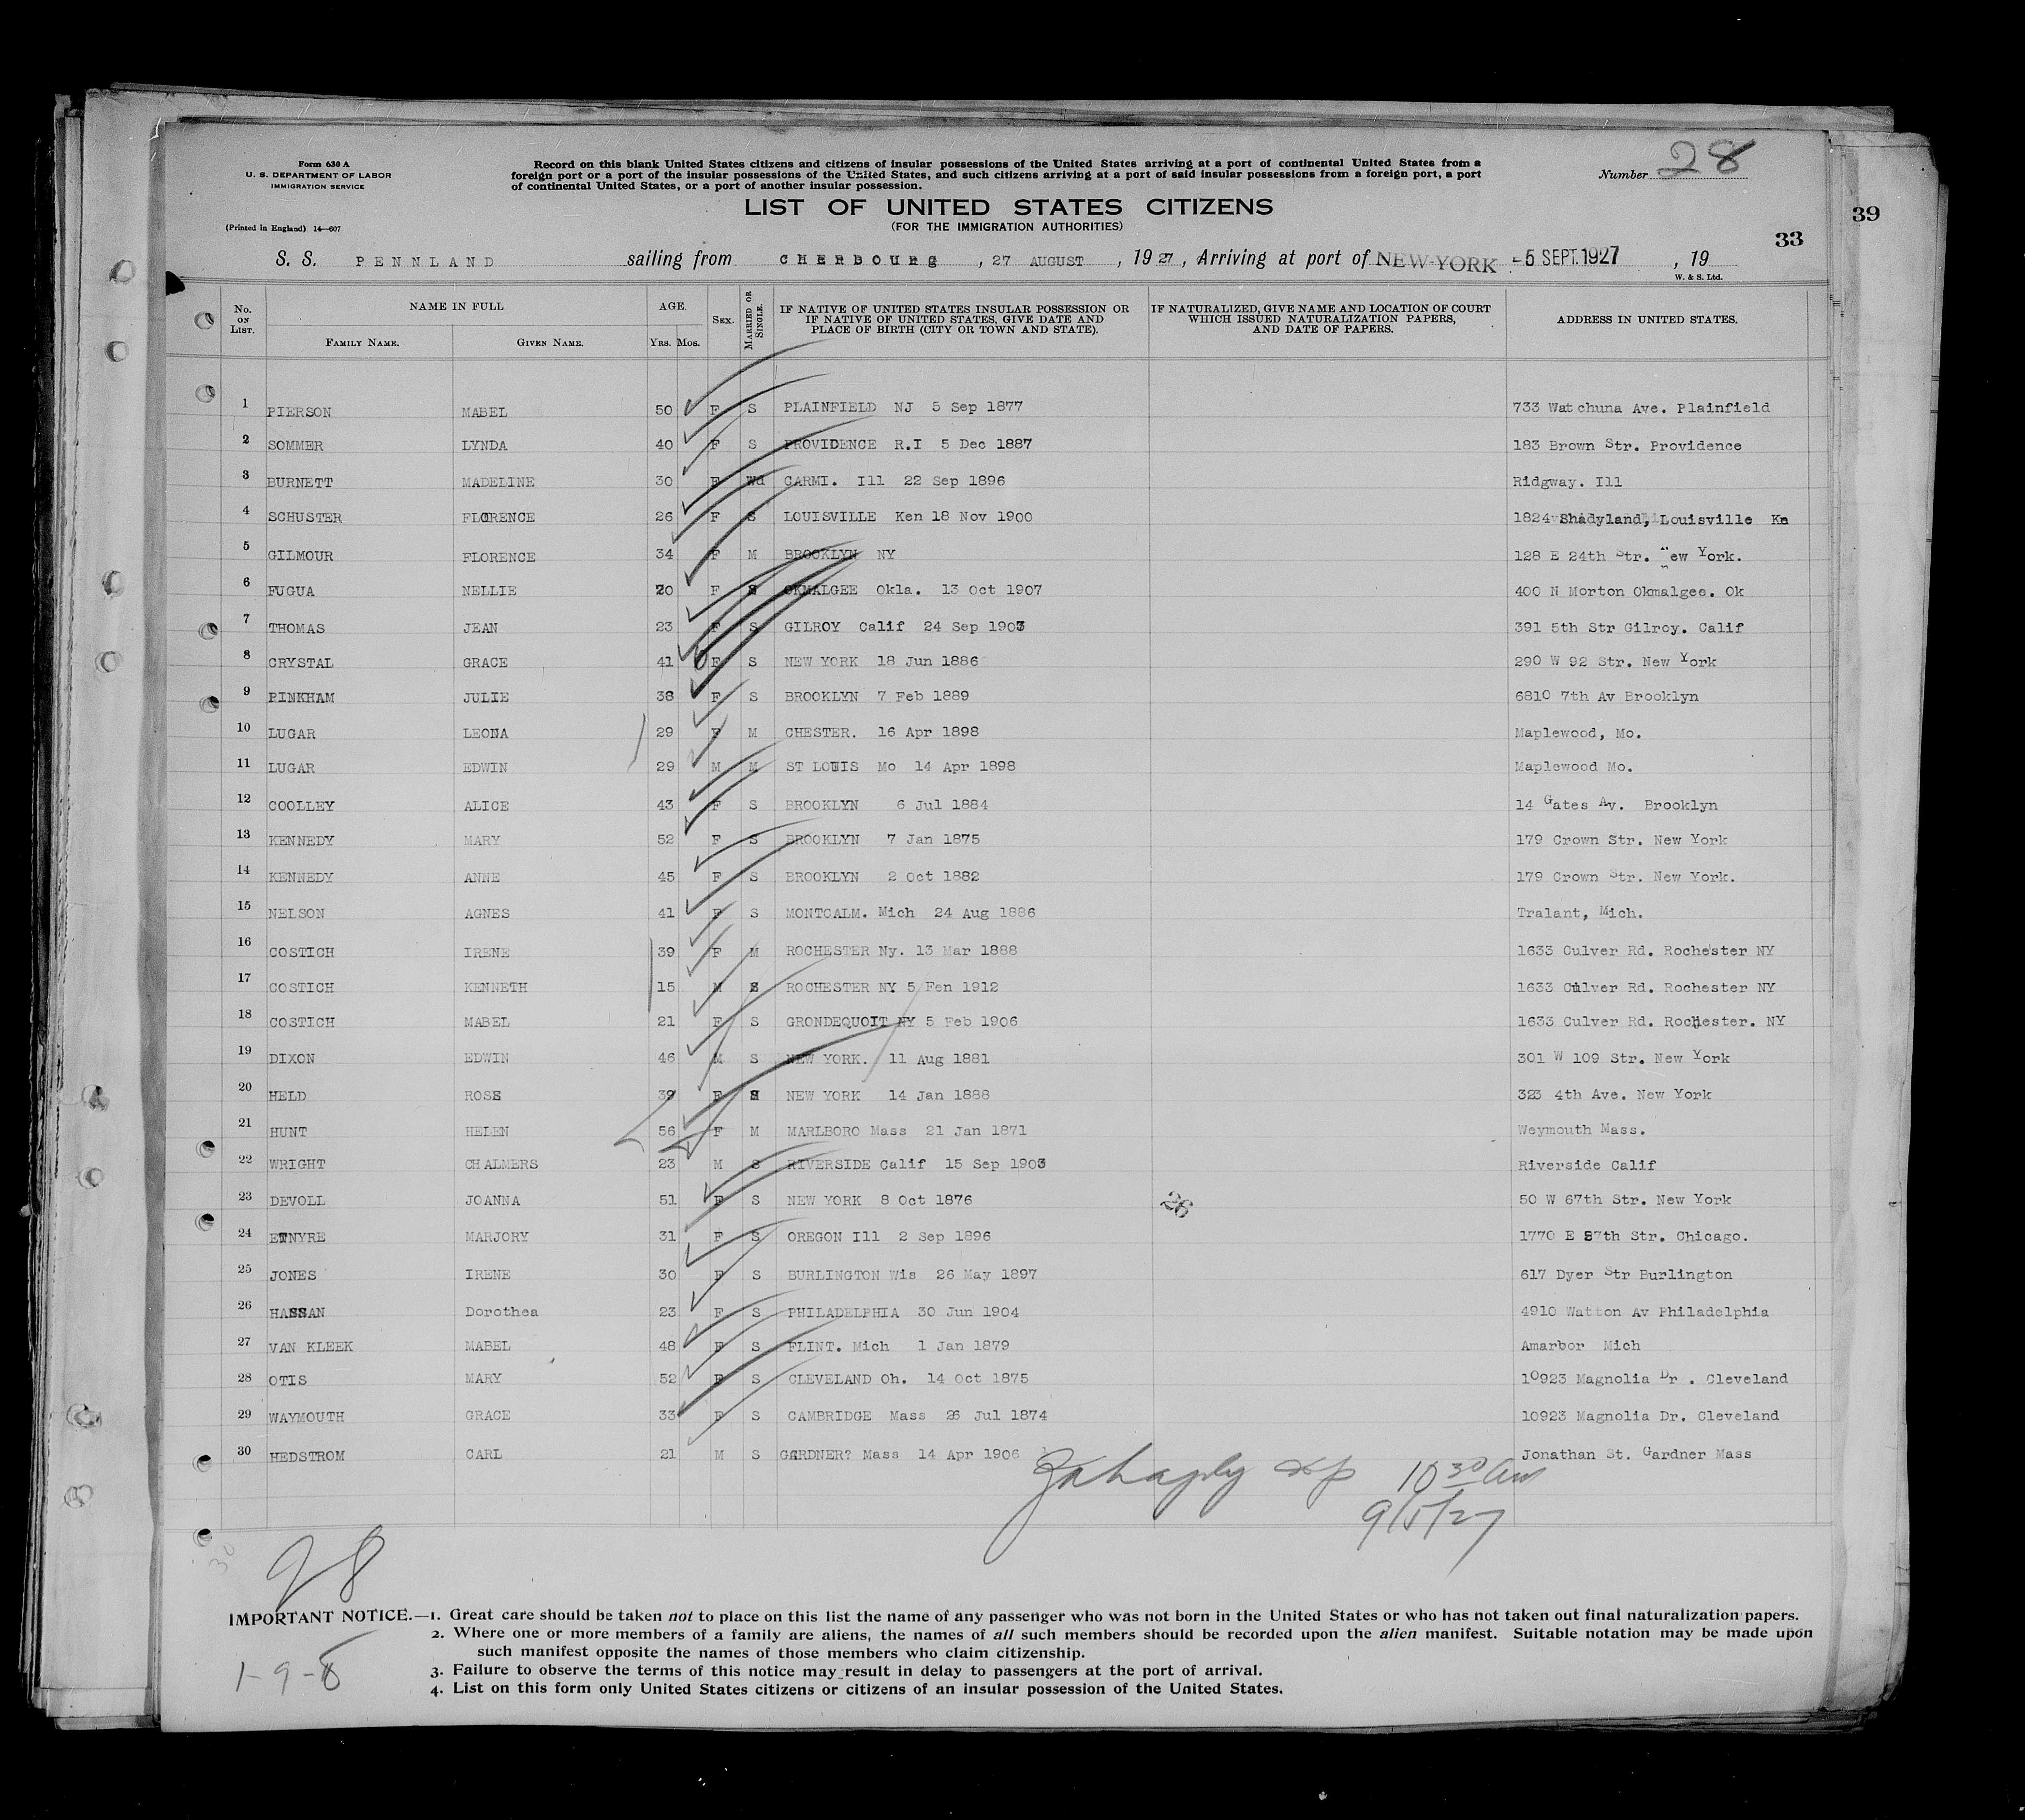 Form 630 A
U. S. DEPARTMENT OF LABOR
IMMIGRATION SERVICE
(Printed in England) 14—607
Record on this blank United States citizens and citizens of insular possessions of the United States arriving at a port of continental United States from a
foreign port or a port of the insular possessions of the United States, and such citizens arriving at a port of said insular possessions from a foreign port, a port
of continental United States, or a port of another insular possession.
Number 28
LIST OF UNITED STATES CITIZENS
(FOR THE IMMIGRATION AUTHORITIES)
39
33
S. S. PENNLAND sailing from CHERBOURG, 27 AUGUST, 1927, Arriving at port of NEW-YORK -5 SEPT.1927, 19
W. & S. Ltd.
No. ON LIST. NAME IN FULL AGE. SEX. MARRIED OR SINGLE. IF NATIVE OF UNITED STATES INSULAR POSSESSION OR IF NATIVE OF UNITED STATES, GIVE DATE AND PLACE OF BIRTH (CITY OR TOWN AND STATE). IF NATURALIZED, GIVE NAME AND LOCATION OF COURT WHICH ISSUED NATURALIZATION PAPERS, AND DATE OF PAPERS. ADDRESS IN UNITED STATES.
FAMILY NAME. GIVEN NAME. YRS. MOS.
1 PIERSON MABEL 50 F S PLAINFIELD NJ 5 Sep 1877 733 Watchuna Ave. Plainfield
2 SOMMER LYNDA 40 F S PROVIDENCE R.I 5 Dec 1887 183 Brown Str. Providence
3 BURNETT MADELINE 30 F Wd CARMI. Ill 22 Sep 1896 Ridgway. Ill
4 SCHUSTER FLORENCE 26 F S LOUISVILLE Ken 18 Nov 1900 1824 Shadyland, Louisville Kn
5 GILMOUR FLORENCE 34 F M BROOKLYN NY 128 E 24th Str. New York.
6 FUGUA NELLIE 20 F S OKMALGEE Okla. 13 Oct 1907 400 N Morton Okmalgee. Ok
7 THOMAS JEAN 23 F S GILROY Calif 24 Sep 1903 391 5th Str Gilroy. Calif
8 CRYSTAL GRACE 41 F S NEW YORK 18 Jun 1886 290 W 92 Str. New York
9 PINKHAM JULIE 38 F S BROOKLYN 7 Feb 1889 6810 7th Av Brooklyn
10 LUGAR LEONA 29 F M CHESTER. 16 Apr 1898 Maplewood, Mo.
11 LUGAR EDWIN 29 M M ST LOUIS Mo 14 Apr 1898 Maplewood Mo.
12 COOLLEY ALICE 43 F S BROOKLYN 6 Jul 1884 14 Gates Av. Brooklyn
13 KENNEDY MARY 52 F S BROOKLYN 7 Jan 1875 179 Crown Str. New York
14 KENNEDY ANNE 45 F S BROOKLYN 2 Oct 1882 179 Crown Str. New York.
15 NELSON AGNES 41 F S MONTCALM. Mich 24 Aug 1886 Tralant, Mich.
16 COSTICH IRENE 39 F M ROCHESTER Ny. 13 Mar 1888 1633 Culver Rd. Rochester NY
17 COSTICH KENNETH 15 M S ROCHESTER NY 5 Fen 1912 1633 Culver Rd. Rochester NY
18 COSTICH MABEL 21 F S GRONDEQUOIT NY 5 Feb 1906 1633 Culver Rd. Rochester. NY
19 DIXON EDWIN 46 M S NEW YORK. 11 Aug 1881 301 W 109 Str. New York
20 HELD ROSE 39 F NEW YORK 14 Jan 1888 323 4th Ave. New York
21 HUNT HELEN 56 F M MARLBORO Mass 21 Jan 1871 Weymouth Mass.
22 WRIGHT CHALMERS 23 M S RIVERSIDE Calif 15 Sep 1903 Riverside Calif
23 DEVOLL JOANNA 51 F S NEW YORK 8 Oct 1876 26 50 W 67th Str. New York
24 ETNYRE MARJORY 31 F S OREGON Ill 2 Sep 1896 1770 E 87th Str. Chicago.
25 JONES IRENE 30 F S BURLINGTON Wis 26 May 1897 617 Dyer Str Burlington
26 HASSAN Dorothea 23 F S PHILADELPHIA 30 Jun 1904 4910 Watton Av Philadelphia
27 VAN KLEEK MABEL 48 F S FLINT. Mich 1 Jan 1879 Amarbor Mich
28 OTIS MARY 52 F S CLEVELAND Oh. 14 Oct 1875 10923 Magnolia Dr. Cleveland
29 WAYMOUTH GRACE 33 F S CAMBRIDGE Mass 26 Jul 1874 10923 Magnolia Dr. Cleveland
30 HEDSTROM CARL 21 M S GARDNER? Mass 14 Apr 1906 Jonathan St. Gardner Mass
10 30 am
9/5/27
30
28
IMPORTANT NOTICE.—1. Great care should be taken not to place on this list the name of any passenger who was not born in the United States or who has not taken out final naturalization papers.
2. Where one or more members of a family are aliens, the names of all such members should be recorded upon the alien manifest. Suitable notation may be made upon
such manifest opposite the names of those members who claim citizenship.
3. Failure to observe the terms of this notice may result in delay to passengers at the port of arrival.
4. List on this form only United States citizens or citizens of an insular possession of the United States.
1-9-8